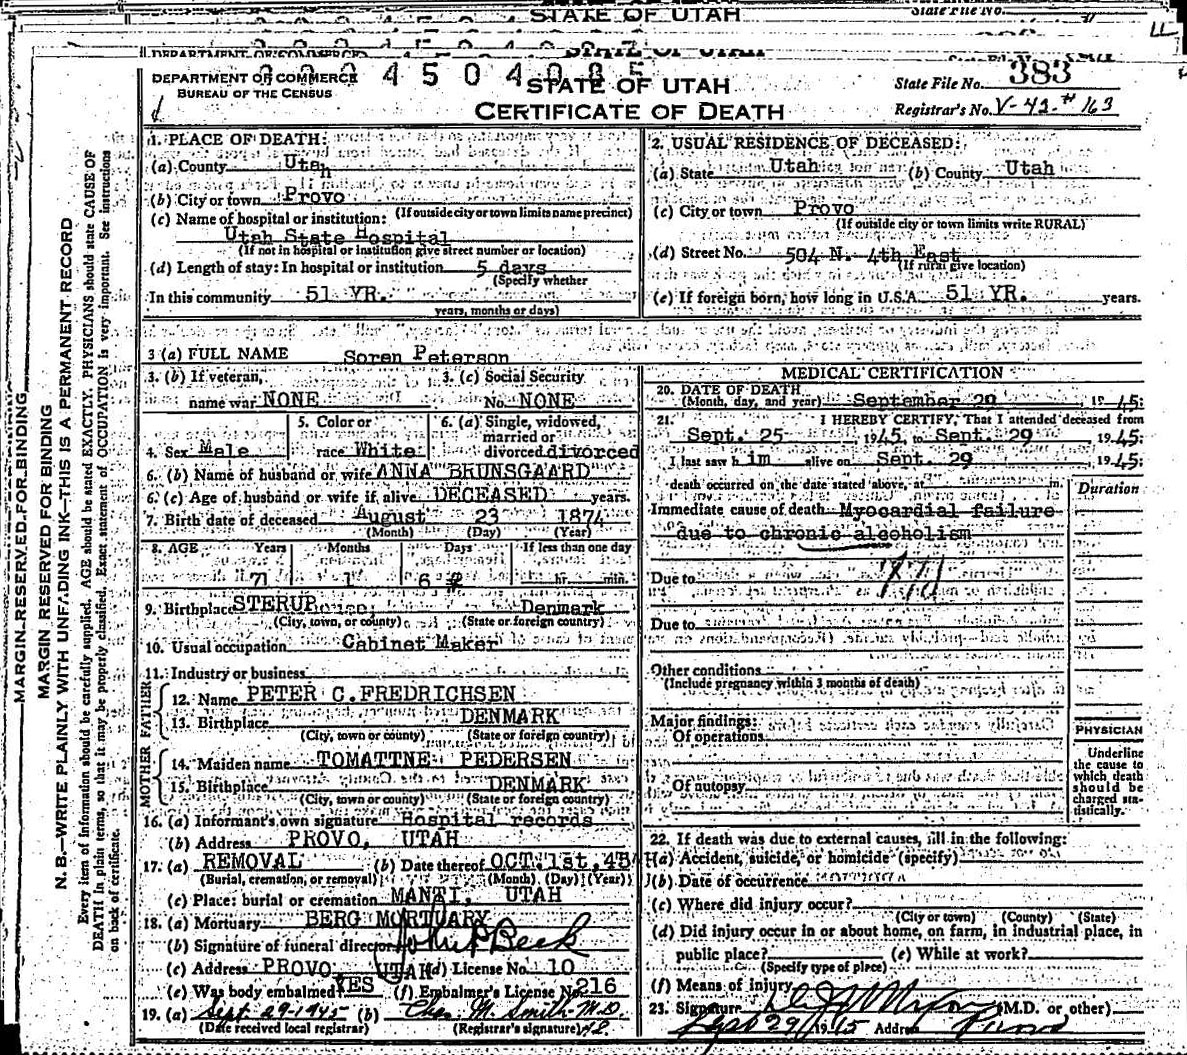 STATE OF UTAH
State File No.
DEPARTMENT OF COMMERCE
STATE OF UTAH
State File No. 383
BUREAU OF THE CENSUS
CERTIFICATE OF DEATH
Registrar's No. V-42-#163
1. PLACE OF DEATH:
(a) County Utah
(b) City or town Provo
(If outside city or town limits name precinct)
(c) Name of hospital or institution:
Utah State Hospital
(If not in hospital or institution give street number or location)
(d) Length of stay: In hospital or institution 5 days
(Specify whether
In this community 51 YR.
years, months or days)
2. USUAL RESIDENCE OF DECEASED:
(a) State Utah (b) County Utah
(c) City or town Provo
(If outside city or town limits write RURAL)
(d) Street No. 504 N. 4th East
(If rural give location)
(e) If foreign born, how long in U.S.A. 51 YR. years.
3 (a) FULL NAME Soren Peterson
3. (b) If veteran, name war NONE
3. (c) Social Security No. NONE
4. Sex Male
5. Color or race White
6. (a) Single, widowed, married or divorced divorced
6. (b) Name of husband or wife ANNA BRUNSGAARD
6. (c) Age of husband or wife if alive DECEASED years.
7. Birth date of deceased August 23 1874
(Month) (Day) (Year)
8. AGE Years Months Days If less than one day
71 1 6 hr. min.
9. Birthplace STERUP Denmark
(City, town, or county) (State or foreign country)
10. Usual occupation Cabinet Maker
11. Industry or business
FATHER
12. Name PETER C. FREDRICHSEN
13. Birthplace DENMARK
(City, town or county) (State or foreign country)
MOTHER
14. Maiden name TOMATTNE PEDERSEN
15. Birthplace DENMARK
(City, town or county) (State or foreign country)
16. (a) Informant's own signature Hospital records
(b) Address PROVO, UTAH
17. (a) REMOVAL (b) Date thereof OCT. 1st, 45
(Burial, cremation, or removal) (Month) (Day) (Year)
(c) Place: burial or cremation MANTI, UTAH
18. (a) Mortuary BERG MORTUARY
(b) Signature of funeral director John P Beck
(c) Address PROVO, UTAH (d) License No. 10
(e) Was body embalmed YES (f) Embalmer's License No. 216
19. (a) Sept 29-1945 (b) Chas. M. Smith M.D.
(Date received local registrar) (Registrar's signature)
MEDICAL CERTIFICATION
20. DATE OF DEATH
(Month, day, and year) September 29 1945
21. I HEREBY CERTIFY, That I attended deceased from
Sept. 25 1945, to Sept. 29 1945
I last saw him alive on Sept. 29 1945
death occurred on the date stated above, at m.
Duration
Immediate cause of death Myocardial failure
due to chronic alcoholism
Due to
Due to
Other conditions
(Include pregnancy within 3 months of death)
Major findings:
Of operations
Of autopsy
PHYSICIAN
Underline the cause to which death should be charged statistically.
22. If death was due to external causes, fill in the following:
(a) Accident, suicide, or homicide (specify)
(b) Date of occurrence
(c) Where did injury occur?
(City or town) (County) (State)
(d) Did injury occur in or about home, on farm, in industrial place, in
public place? (e) While at work?
(Specify type of place)
(f) Means of injury
23. Signature (M.D. or other)
Sept 29 1945 Address Provo
MARGIN RESERVED FOR BINDING
MARGIN RESERVED FOR BINDING
N. B.—WRITE PLAINLY WITH UNFADING INK—THIS IS A PERMANENT RECORD
Every item of information should be carefully supplied. AGE should be stated EXACTLY. PHYSICIANS should state CAUSE OF
DEATH in plain terms, so that it may be properly classified. Exact statement of OCCUPATION is very important. See instructions
on back of certificate.